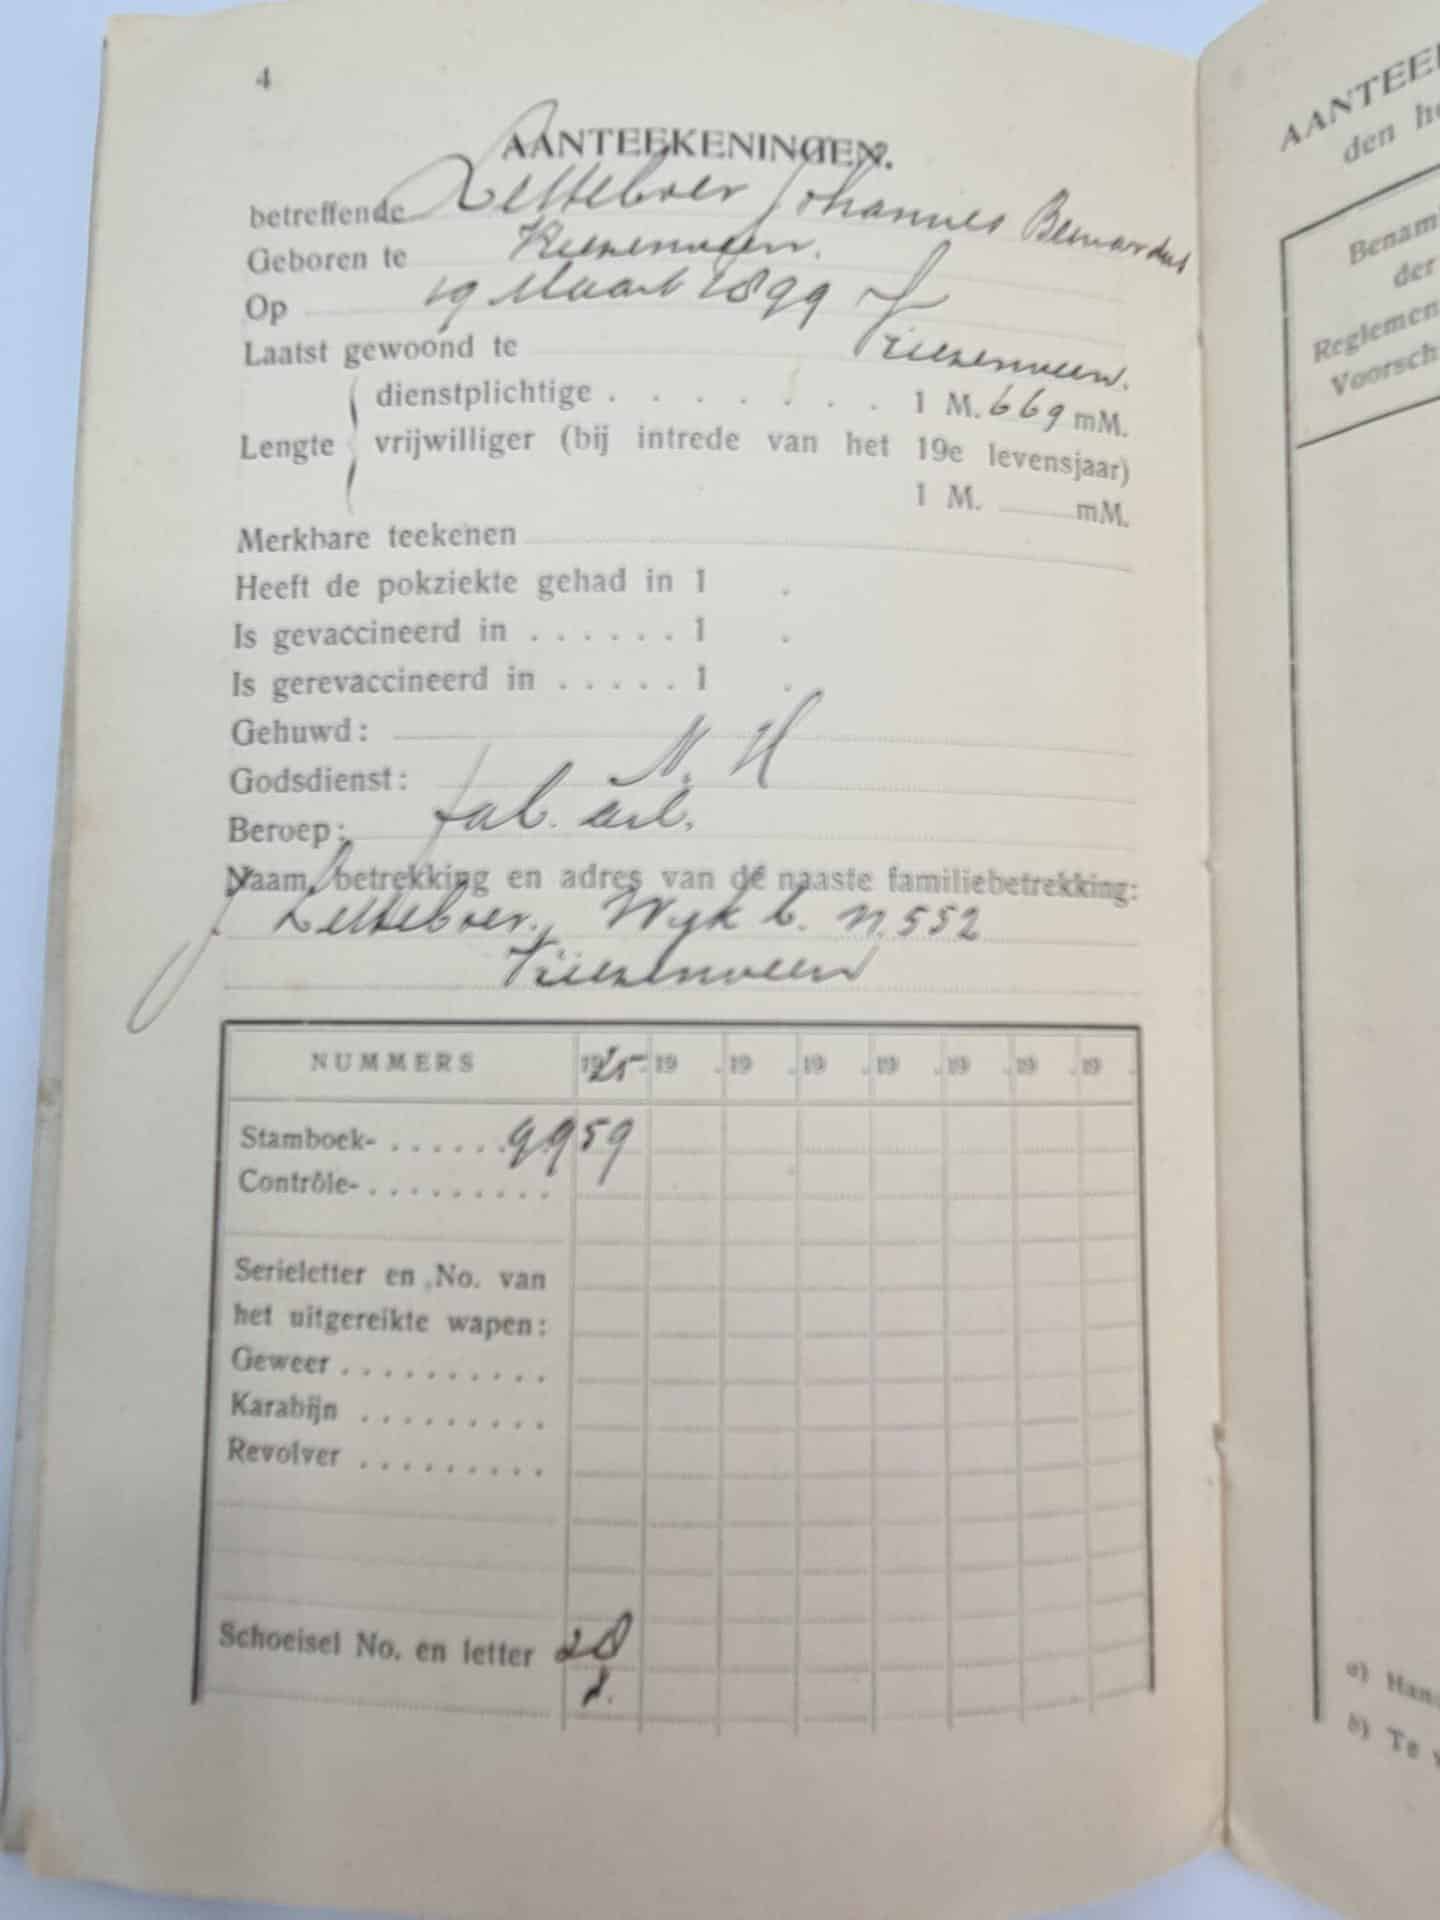 4
AANTEEKENINGEN.
betreffende Letteboer Johannes Bernardus
Geboren te Vriezenveen.
Op 19 Maart 1899
Laatst gewoond te Vriezenveen.
dienstplichtige . . . . . . . 1 M. 669 mM.
Lengte vrijwilliger (bij intrede van het 19e levensjaar)
1 M. mM.
Merkbare teekenen
Heeft de pokziekte gehad in 1 .
Is gevaccineerd in . . . . . . 1 .
Is gerevaccineerd in . . . . . 1 .
Gehuwd:
Godsdienst: N. H
Beroep: fab. arb.
Naam, betrekking en adres van de naaste familiebetrekking:
J. Letteboer. Wyk b. n. 552
Vriezenveen
NUMMERS 19 19 . 19 . 19 . 19 . 19 . 19 . 19 .
Stamboek- . . . . . . 9959
Contrôle- . . . . . . . . .
Serieletter en No. van
het uitgereikte wapen:
Geweer . . . . . . . . . .
Karabijn . . . . . . . . .
Revolver . . . . . . . . .
Schoeisel No. en letter 28
d.
AANTEE
den h
Benam
der
Reglemen
Voorsch
a) Han
b) Te v